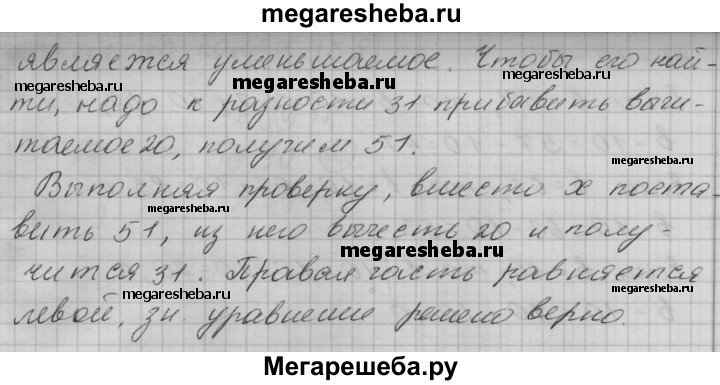 megaresheba.ru
является уменьшаемое. Чтобы его най-
megaresheba.ru megaresheba.ru megaresheba.ru
ти, надо к разности 31 прибавить вычи-
таемое 20, получим 51.
megaresheba.ru
Выполняя проверку, вместо х поста-
megaresheba.ru
вить 51, из него вычесть 20 и полу-
megaresheba.ru
чится 31. Правая часть равняется
megaresheba.ru megaresheba.ru
левой, зн. уравнение решено верно.
Мегарешеба.ру